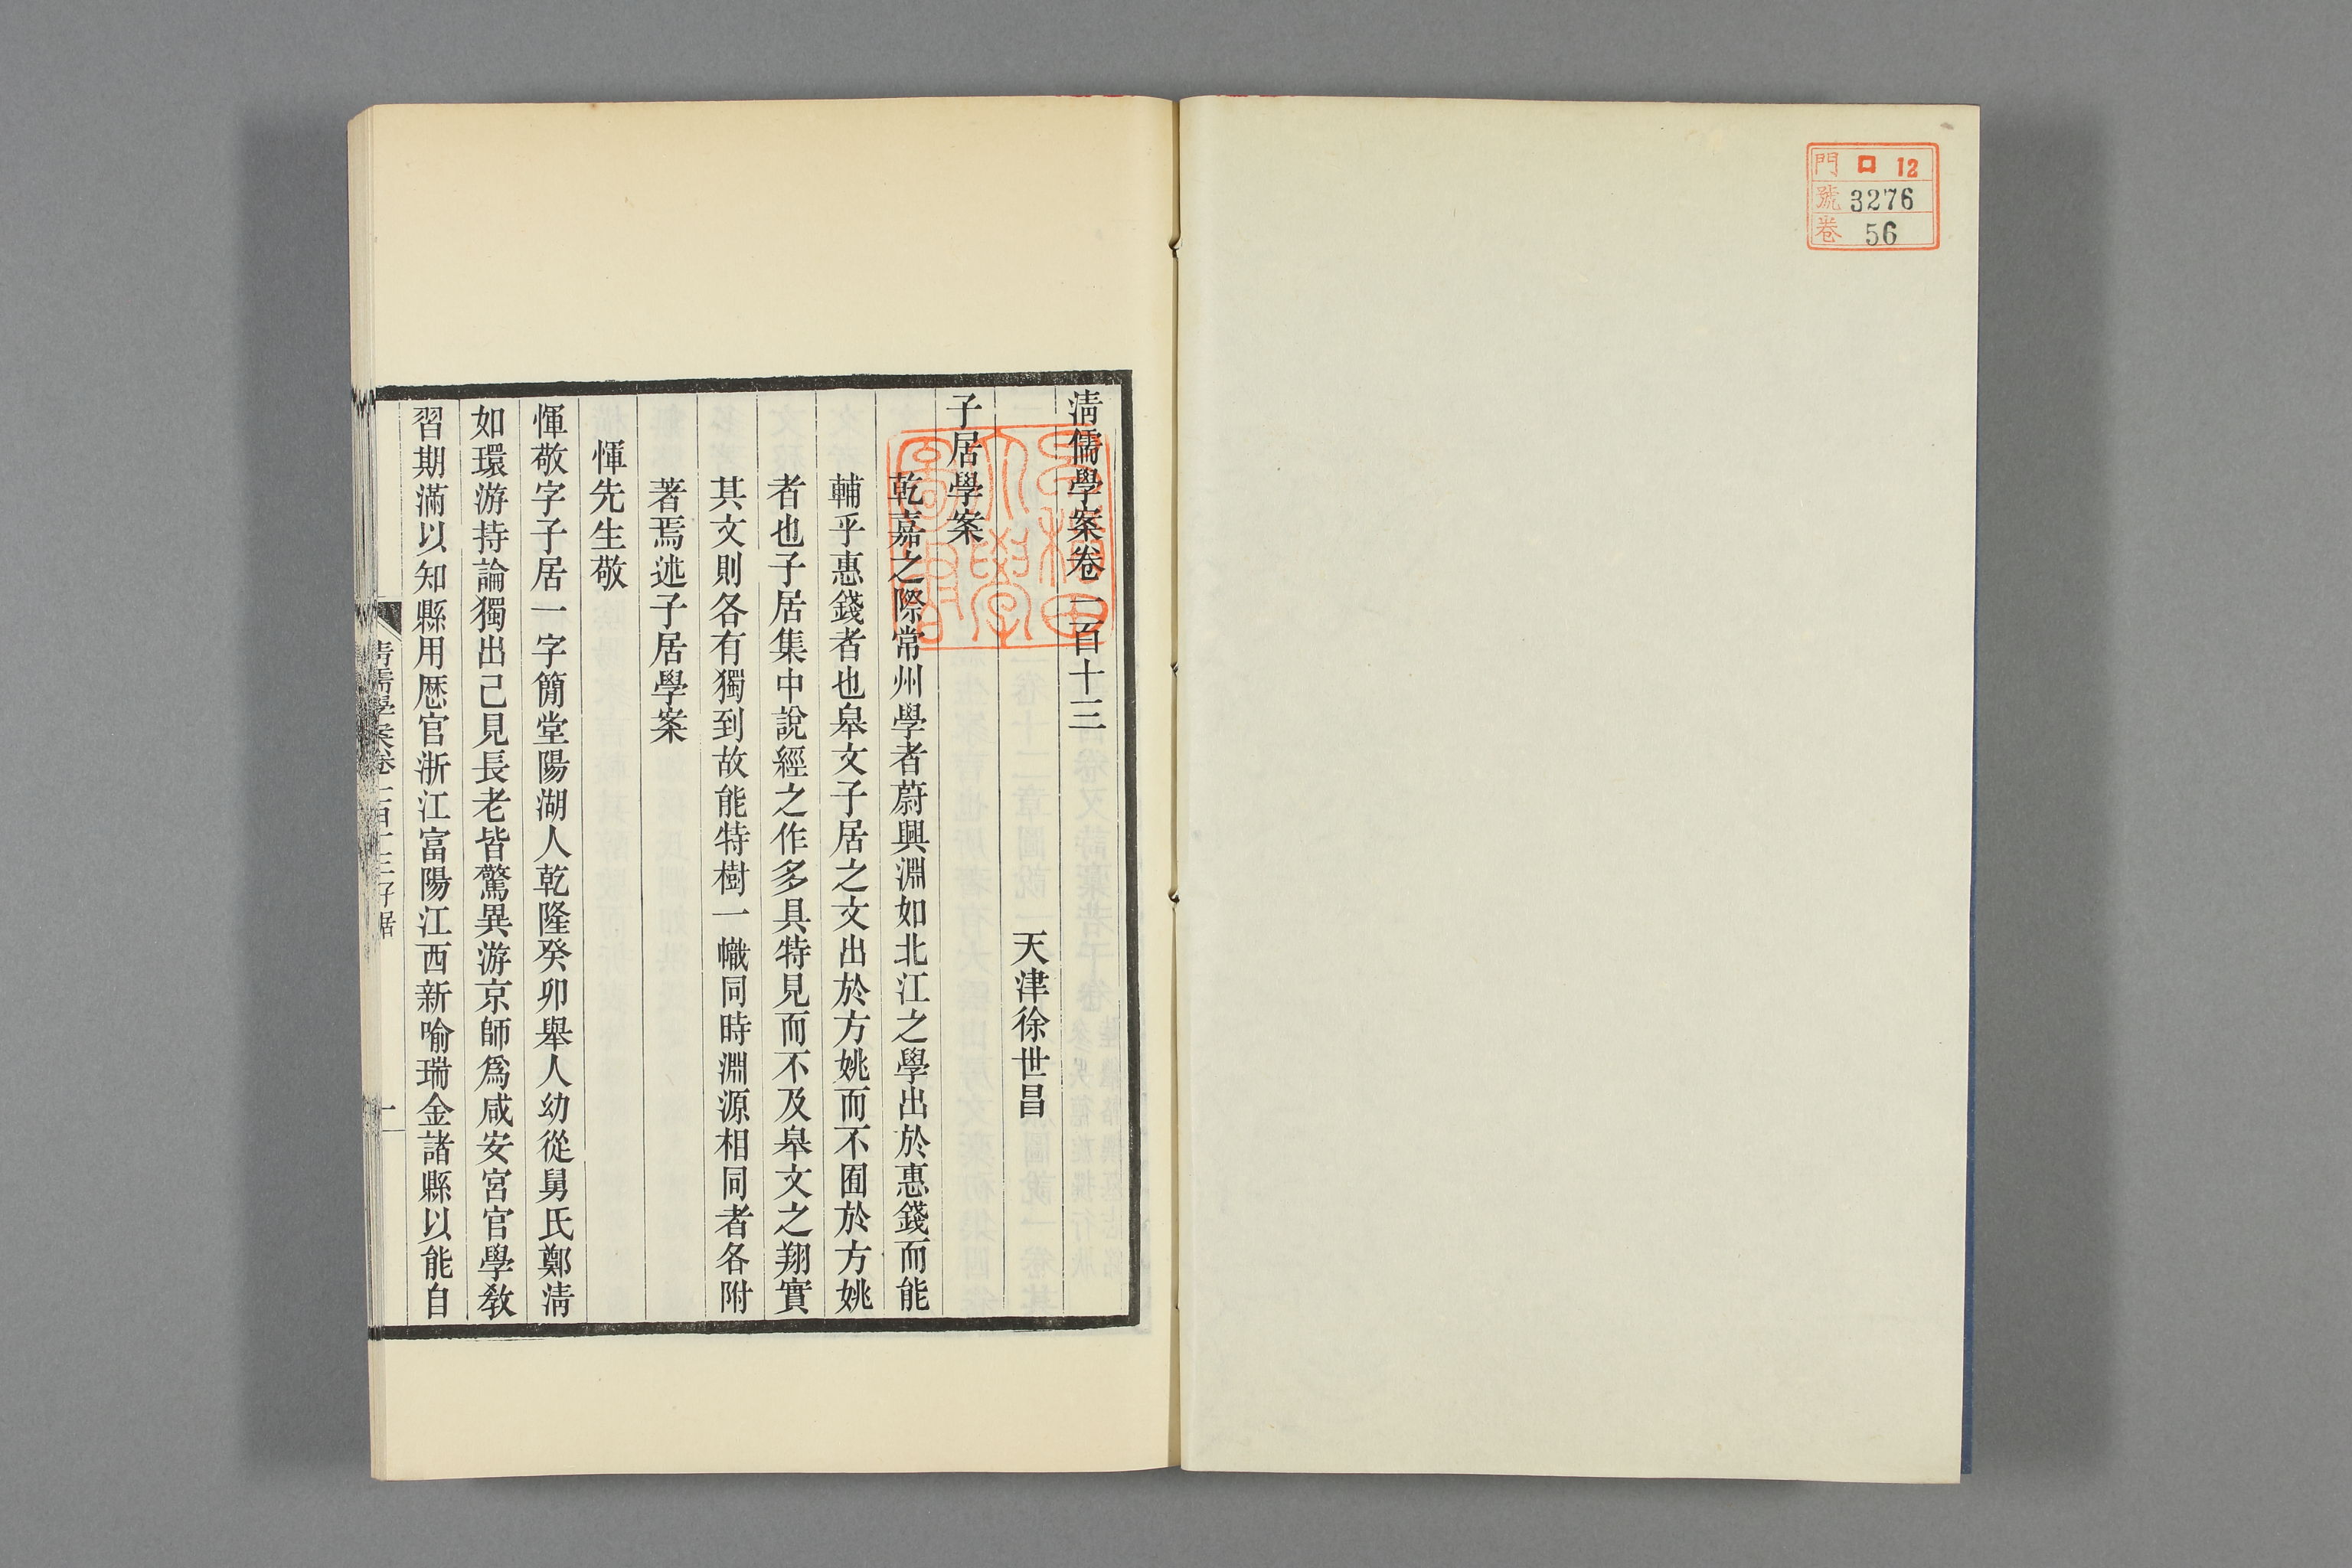 門 口 12
號 3276
卷 56
清儒學案卷一百十三
天津徐世昌
子居學案
乾嘉之際常州學者蔚興淵如北江之學出於惠錢而能
輔乎惠錢者也皋文子居之文出於方姚而不囿於方姚
者也子居集中說經之作多具特見而不及皋文之翔實
其文則各有獨到故能特樹一幟同時淵源相同者各附
著焉述子居學案
惲先生敬
惲敬字子居一字簡堂陽湖人乾隆癸卯舉人幼從舅氏鄭清
如環游持論獨出己見長老皆驚異游京師爲咸安宮官學教
習期滿以知縣用歷官浙江富陽江西新喻瑞金諸縣以能自
清儒學案卷一百十三子居
一
早稻田大學圖書